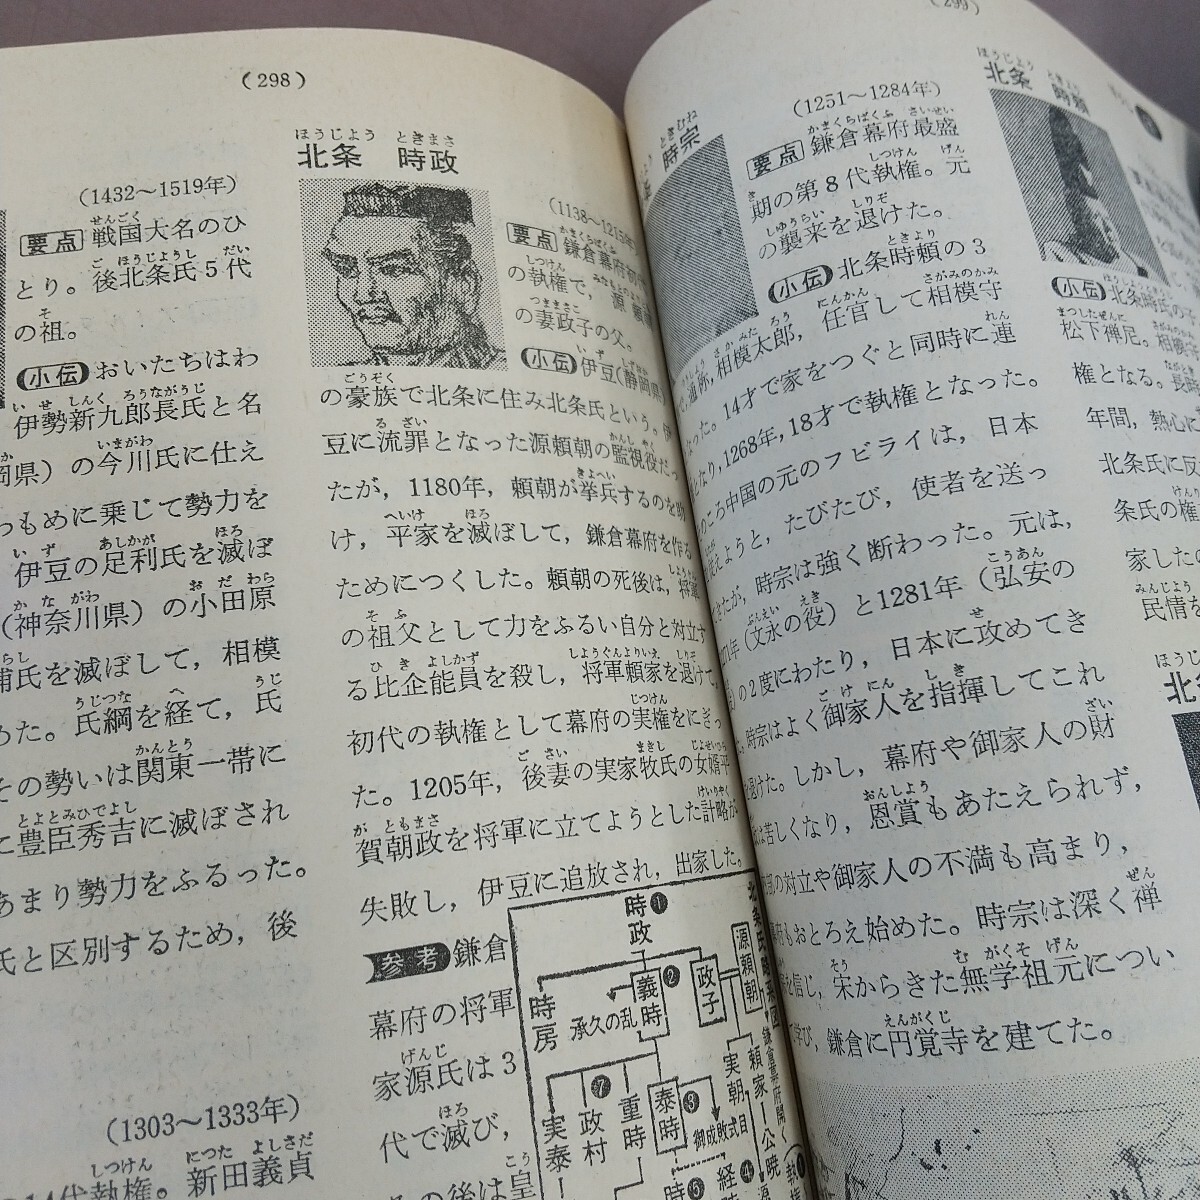 (298)
(1432〜1519年)
要点 戦国大名のひ
とり。後北条氏5代
の祖。
小伝 おいたちはわ
伊勢新九郎長氏と名
岡県)の今川氏に仕え
つもめに乗じて勢力を
伊豆の足利氏を滅ぼ
(神奈川県)の小田原
浦氏を滅ぼして,相模
めた。氏綱を経て,氏
その勢いは関東一帯に
に豊臣秀吉に滅ぼされ
あまり勢力をふるった。
氏と区別するため,後
(1303〜1333年)
14代執権。新田義貞
ほうじょう ときまさ
北条 時政
(1138〜1215年
要点 鎌倉幕府初
の執権で,源頼朝
の妻政子の父。
小伝 伊豆(静岡県)
の豪族で北条に住み北条氏という。伊
豆に流罪となった源頼朝の監視役だっ
たが,1180年,頼朝が挙兵するのを助
け,平家を滅ぼして,鎌倉幕府を作る
ためにつくした。頼朝の死後は,将軍
の祖父として力をふるい自分と対立す
る比企能員を殺し,将軍頼家を退けて,
初代の執権として幕府の実権をにぎっ
た。1205年,後妻の実家牧氏の女婿平
賀朝政を将軍に立てようとした計略が
失敗し,伊豆に追放され,出家した。
参考 鎌倉
幕府の将軍
家源氏は3
代で滅び,
その後は皇
北条氏略系図
❶
時政
時房
承久の乱
義時
❷
政子
源頼朝
鎌倉幕府開
実朝
頼家
公暁
実泰
❼
政村
重時
泰時
❸
御成敗式目
❹
経時
❺
時
(299)
ときむね
時宗
(1251〜1284年)
要点 鎌倉幕府最盛
期の第8代執権。元
の襲来を退けた。
小伝 北条時頼の3
,通称,相模太郎,任官して相模守
なった。14才で家をつぐと同時に連
となり,1268年,18才で執権となった。
のころ中国の元のフビライは,日本
従えようと,たびたび,使者を送っ
きたが,時宗は強く断わった。元は,
年(文永の役)と1281年(弘安の
の2度にわたり,日本に攻めてき
,時宗はよく御家人を指揮してこれ
退けた。しかし,幕府や御家人の財
は苦しくなり,恩賞もあたえられず,
部の対立や御家人の不満も高まり,
府もおとろえ始めた。時宗は深く禅
を信じ,宋からきた無学祖元につい
学び,鎌倉に円覚寺を建てた。
ほうじょう ときより
北条 時頼
小伝 北条時氏の
松下禅尼。相模守
権となる。
年間,熱心に
北条氏に反
条氏の権
家したの
民情を
ほうじ
北条